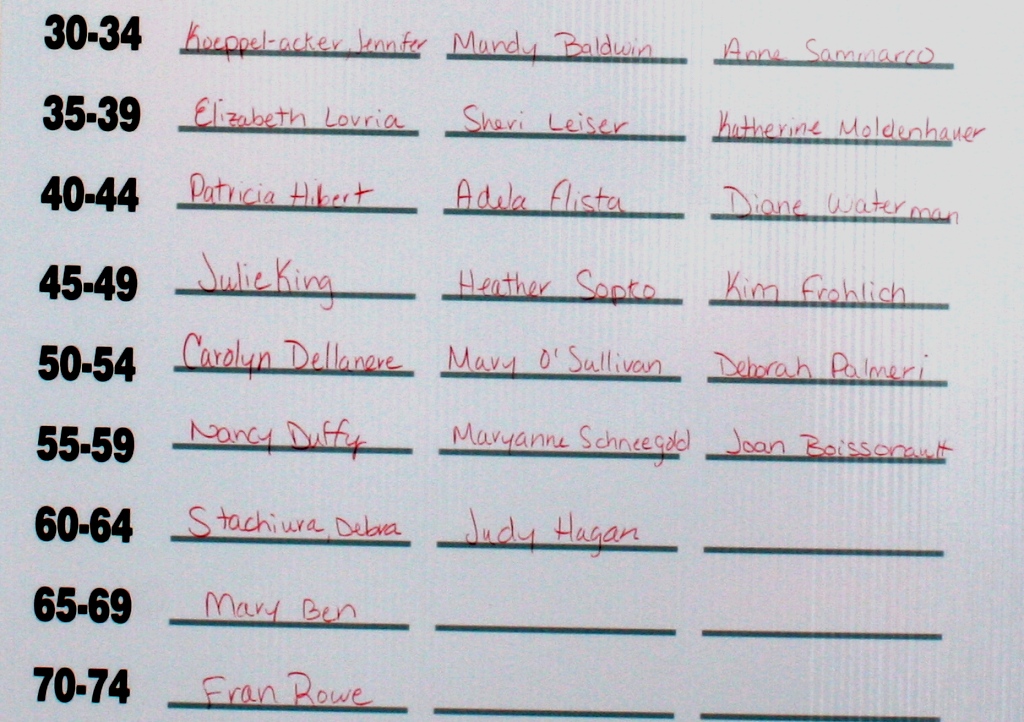 30-34 Koeppel-acker, Jennifer Mandy Baldwin Anne Sammarco
35-39 Elizabeth Lovria Sheri Leiser Katherine Moldenhauer
40-44 Patricia Hibert Adela Flista Diane Waterman
45-49 Julie King Heather Sopko Kim Frohlich
50-54 Carolyn Dellanave Mary O'Sullivan Deborah Palmeri
55-59 Nancy Duffy Maryanne Schneegold Joan Boissonault
60-64 Stachiura, Debra Judy Hagan
65-69 Mary Ben
70-74 Fran Rowe